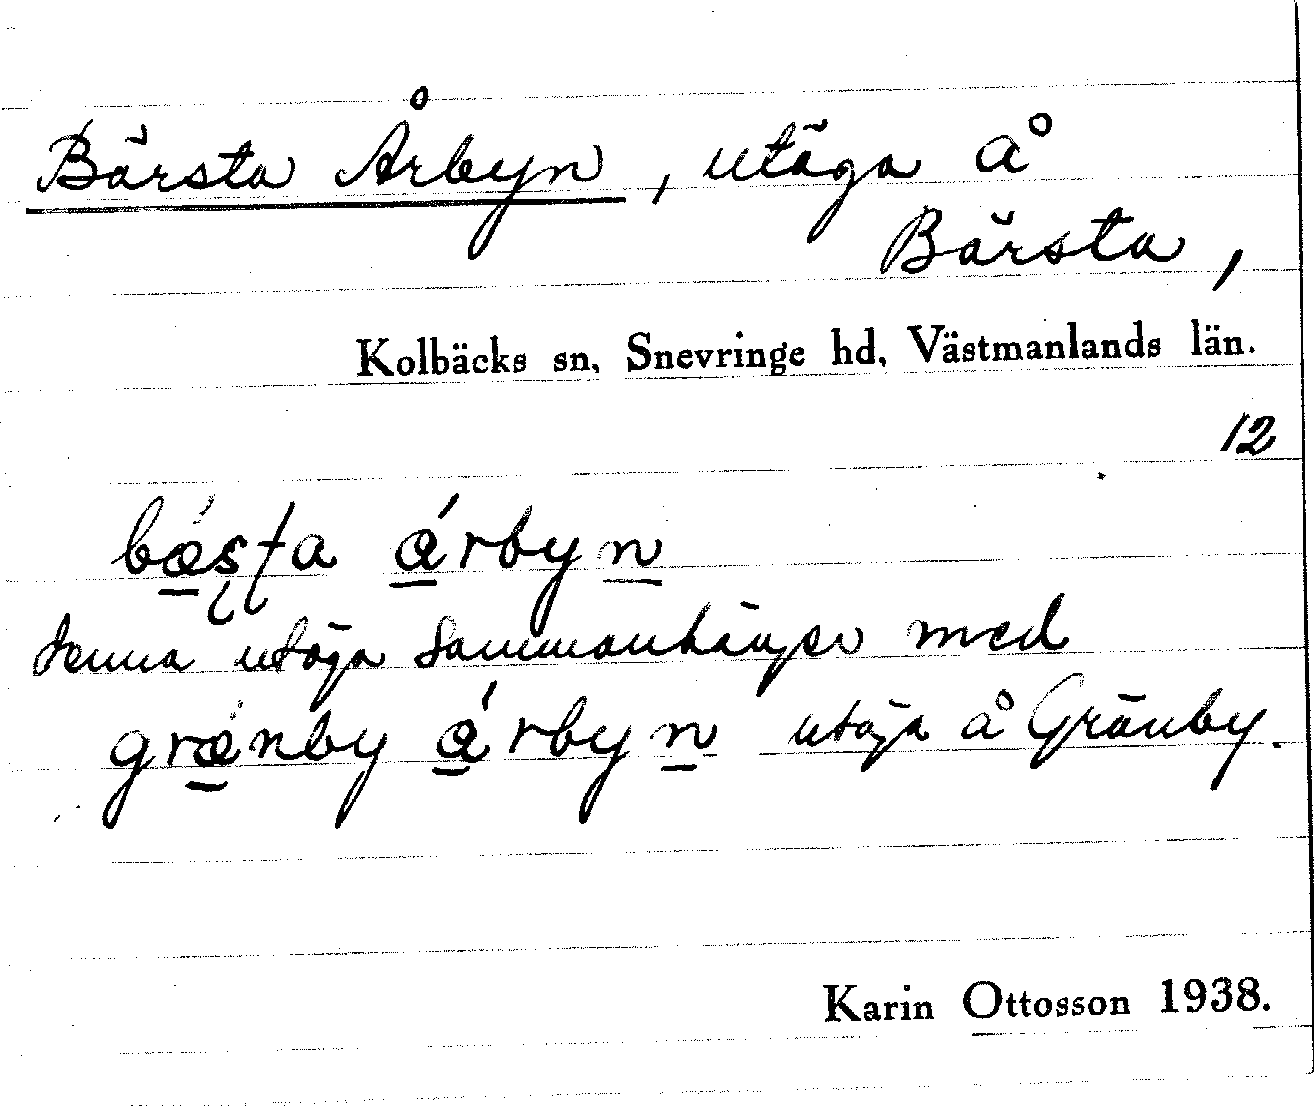 Bärsta Årbyn, utäga å
Bärsta,
Kolbäcks sn, Snevringe hd, Västmanlands län.
12
bǽ̲ʂʈa á̲rbyn̲
denna utäga sammanhänger med
græ̲̀nby á̲rbyn̲ utäga å Gränby.
Karin Ottosson 1938.